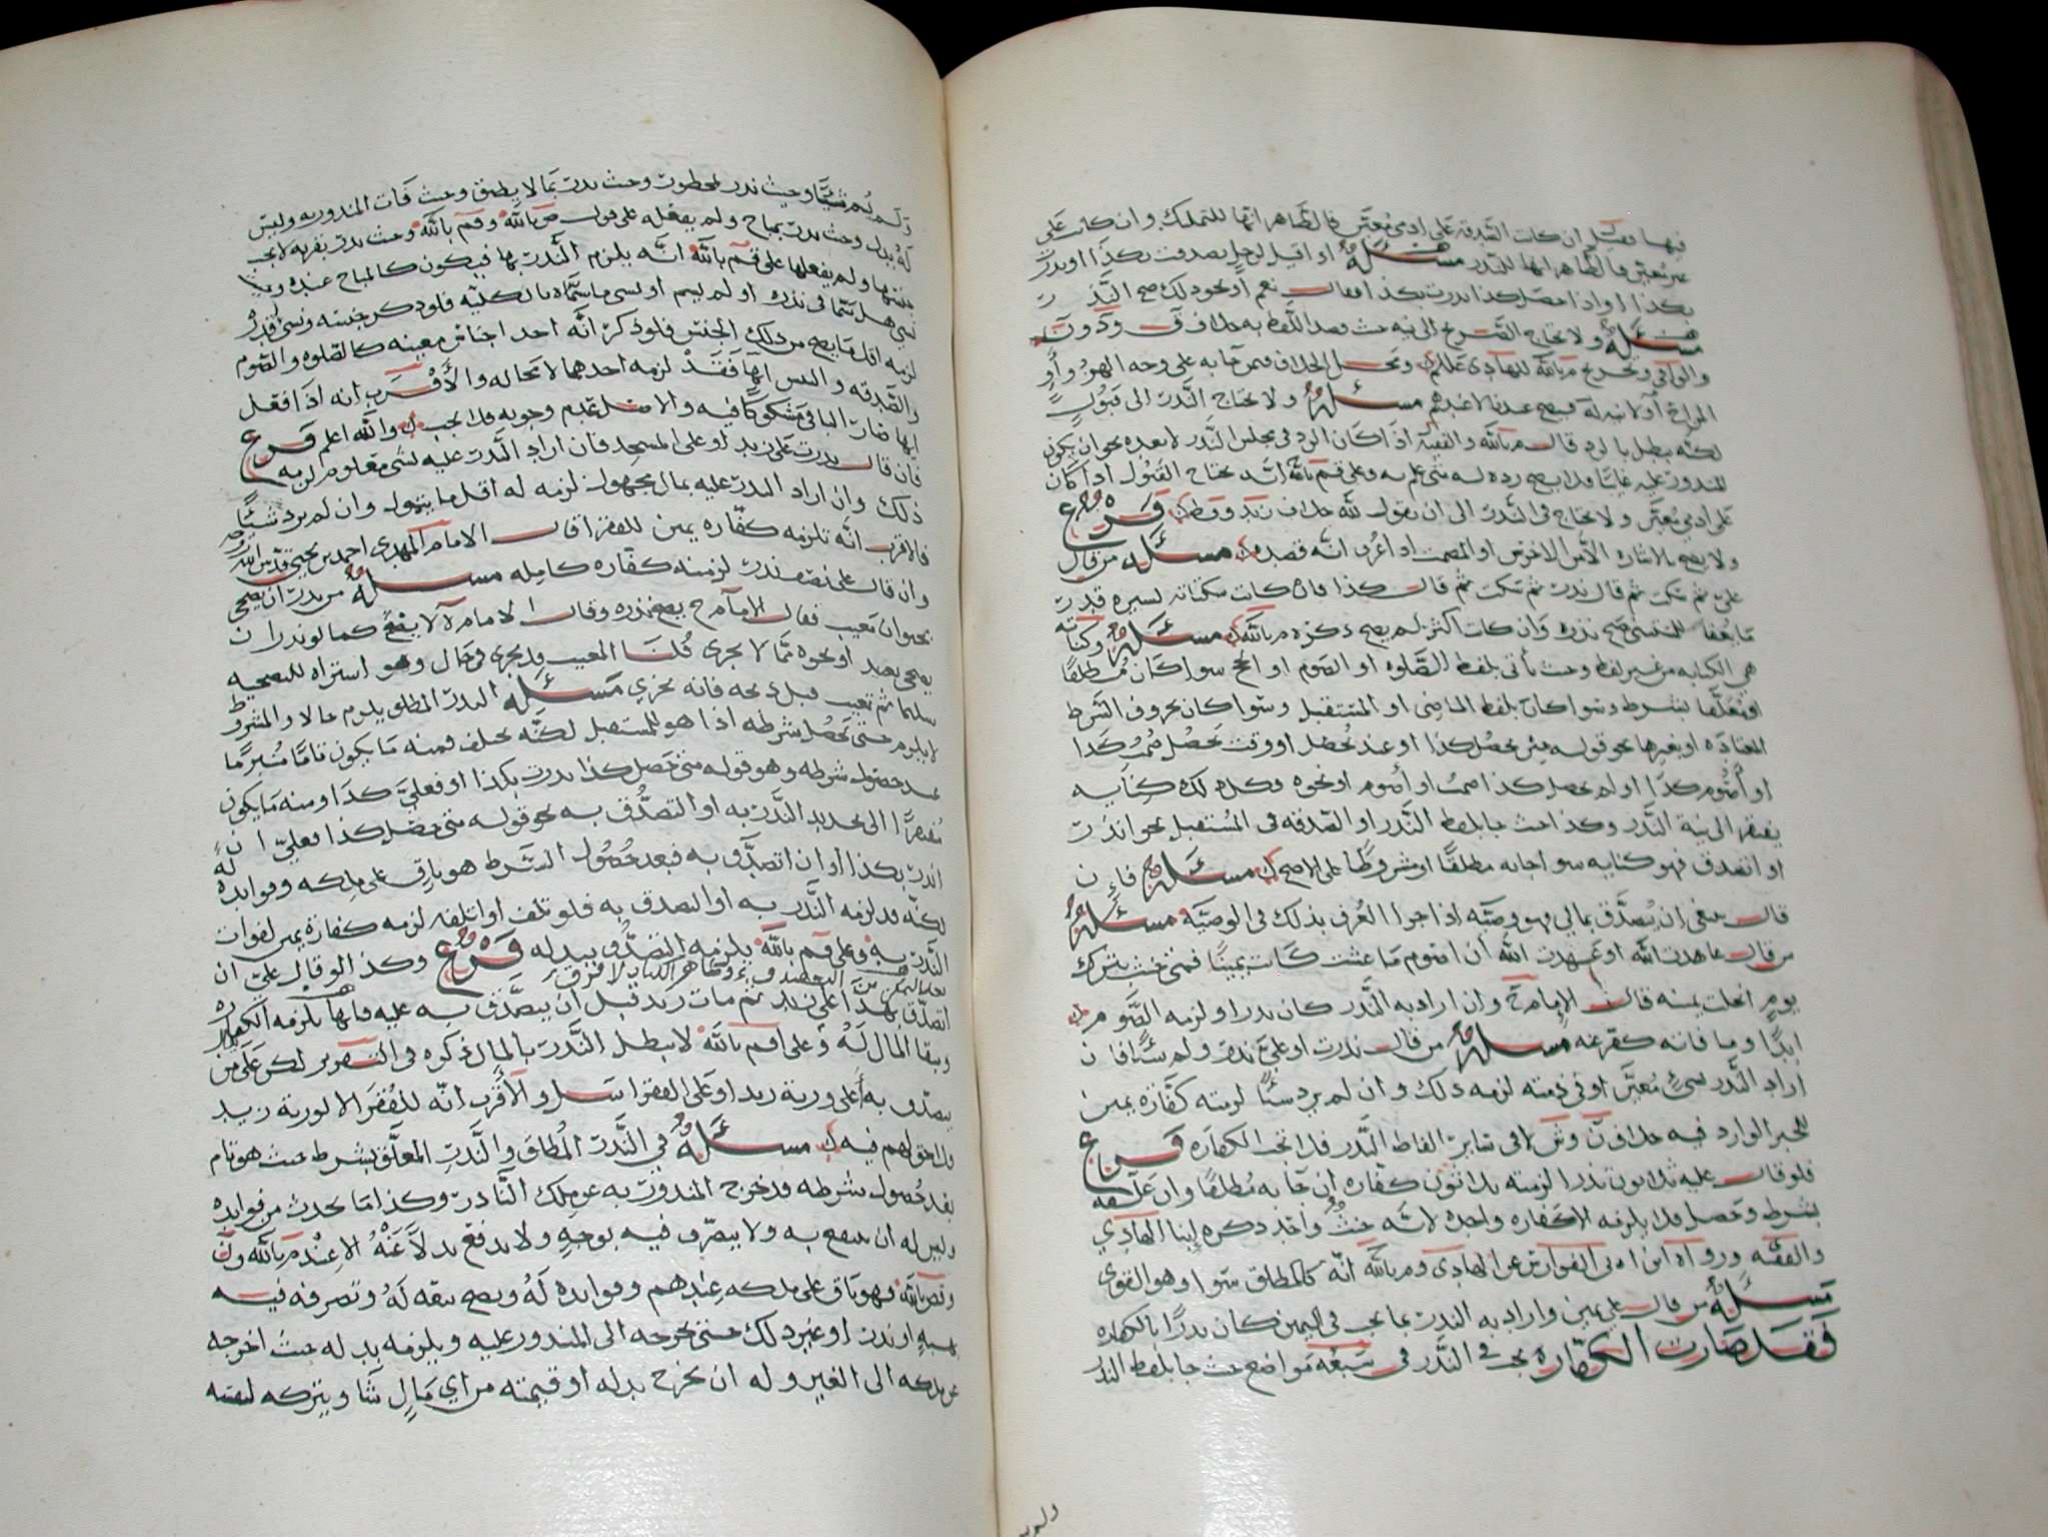 فيها وقيل ان كانت الصدقة على ادمي معين فالظاهر انها للتمليك وان كانت على
غير معين فالظاهر انها للنذر مسئلة او اقيل لرجل تصدقت بكذا او نذرت
بكذا او اذا حصل كذا نذرت بكذا فقال نعم او نحو ذلك صح النذر
مسئلة ولا يحتاج الصريح الى نيه حيث قصد اللفظ به خلاف
والوافي وتخريج م بالله للهادي عللم ومحل الخلاف فيمن جا به على وجه الهزو او
المزاح او لا نيه له فيصح عندنا لا عندهم مسئلة ولا يحتاج النذر الى قبول
لكنه يبطل بالرد قال م بالله والفقيه اذا كان الرد في مجلس النذر لا بعده نحو ان يكون
المنذور عليه غايبا فلا يصح رده له متى علم به وعلى قم بالله انه يحتاج القبول اذا كان
على ادمي معين ولا يحتاج في النذر الى ان يقول لله خلاف زيد وقط فرع
ولا يصح بالاشاره الا من الاخرس او المصمت اذا عرف انه قصده مسئلة من قال
علي ثم سكت ثم قال نذرت ثم سكت ثم قال كذا فان كانت سكتاته يسيره قدرت
ما يعفا للتنفس صح نذره وان كانت اكثر لم يصح ذكره م بالله مسئلة وكناية
هي الكنايه من غير لفظ وحيث يأتي بلفظ الصلوه او الصوم او الحج سوا كان مطلقا
او معلقا بشرط وسوا كان بلفظ الماضي او المستقبل وسوا كان بحروف الشرط
المعتاده او بغيرها نحو قوله متى يحصل كذا او عند يحصل او وقت يحصل صمت كذا
او أصوم كذا او لم يحصل كذا صمت او أصوم او نحوه وكل ذلك كنايه
يفتقر الى نية النذر وكذا حيث جا بلفظ النذر او الصدقه في المستقبل نحو انذرت
او اتصدق فهو كنايه سوا جا به مطلقا او مشروطا على الاصح مسئلة فان
قال ينبغي ان يتصدق بمالي فهو وصية اذا جرا العرف بذلك في الوصية مسئلة
من قال عاهدت الله او عهدت الله ان اصوم ما عشت كانت يمينا فمتى حنث بترك
يوم انحلت يمينه قال الامام ح وان اراد به النذر كان نذرا ولزمه الصوم
ابدا وما فاته كفر عنه مسئلة من قال نذرت او علي نذر ولم شيا فان
اراد النذر بشيء معين او في ذمته لزمه ذلك وان لم يرد شيئا لزمته كفارة يمين
للخبر الوارد فيه خلاف ن وش لا في ساير الفاظ النذر فلا تجب الكفاره فرع
فلو قال عليه ثلاثون نذرا لزمته ثلاثون كفاره ان جا به مطلقا وان علقه
بشرط وحصل فلا يلزمه الا كفاره واحده لانه حنث واحد ذكره ابنا الهادي
والفقيه ورواه ابن ابي الفوارس عن الهادي وم بالله انه كالمطلق سوا وهو القوي
مسئلة من قال علي يمين واراد به النذر بما يجب في اليمين كان نذرا بالكفاره
فقد صارت الكفاره تجب في النذر في سبعه مواضع حيث جا بلفظ النذر
ولم يسم شيئا وحيث نذر بمحظور وحيث نذر بما لا يطيق وحيث فات المنذور به وليس
له بدل وحيث نذر بمباح ولم يفعله على قول ص بالله وقم بالله وحيث نذر بقربه لا يجب
جنسها ولم يفعلها على قم بالله انه يلزم النذر بها فيكون كالمباح عنده
نسي هل سمى في نذره او لم يسم او نسي ما سماه بالكليه فلو ذكر جنسه ونسي قدره
لزمه اقل ما يصح من ذلك الجنس فلو ذكر انه احد اجناس معينه كالصلوه والصوم
والصدقه والتبس ايها فقد لزمه احدهما لا محاله والأقرب انه اذا فعل
ايها صار الباقي مشكوكا فيه والاصل عدم وجوبه فلا يجب والله اعلم فرع
فان قال نذرت على زيد او على المسجد فان اراد النذر عليه بشي معلوم لزمه
ذلك وان اراد النذر عليه بمال مجهول لزمه له اقل ما يتمول وان لم يرد شيئا
فالاقرب انه تلزمه كفاره يمين للفقرا قال الامام المهدي احمد بن يحيى قدس الله روحه
وان قال علي نصف نذر لزمته كفاره كامله مسئلة من نذر ان يضحي
بحيوان معيب فقال الامام ح يصح نذره وقال الامام لا يصح كما لو نذر ان
يضحي بصيد او نحوه مما لا يجزي قلنا المعيب قد يجزي في حال وهو اذا اشتراه للتضحيه
سليما ثم تعيب قبل ذبحه فانه يجزي مسئلة النذر المطلق يلزم حالا والمشروط
لا يلزم حتى يحصل شرطه اذا هو للمستقبل لكنه يختلف فمنه ما يكون تاما مبرما
عند حصول شرطه وهو قوله متى حصل كذا نذرت بكذا او فعلي كذا ومنه ما يكون
مفتقرا الى تجديد النذر به او التصدق به نحو قوله متى حصل كذا فعلي ان
انذر بكذا او ان اتصدق به فبعد حصول الشرط هو باق على ملكه وفوايده له
لكنه قد لزمه النذر به او التصدق به فلو تلف او اتلفه لزمه كفارة يمين لفوات
النذر به وعلى قم بالله يلزمه التصدق ببدله فرع وكذا لو قال علي ان
اتصدق بهذا على زيد ثم مات زيد قبل ان يتصدق به عليه فانها تلزمه الكفاره
وبقا المال له وعلى قم بالله لا يبطل النذر بالمال ذكره في التقرير لكن على من
يتصدق به أعلى ورثة زيد او على الفقرا سل والأقرب انه للفقرا لا لورثة زيد
فلا حق لهم فيه مسئلة في النذر المطلق والنذر المعلق بشرط حيث هو تام
بعد حصول شرطه قد خرج المنذور به عن ملك الناذر وكذا ما يحدث من فوايده
وليس له ان ينتفع به ولا يتصرف فيه بوجه ولا يدفع بدلا عنه الا عند م بالله
وقص بالله فهو باق على ملكه عندهم وفوايده له ويصح بيعه له وتصرفه فيه
بهبه او نذر او غير ذلك حتى يخرجه الى المنذور عليه ويلزمه بدله حيث اخرجه
عن ملكه الى الغير وله ان يخرج بدله او قيمته من اي مال شا ويتركه لنفسه